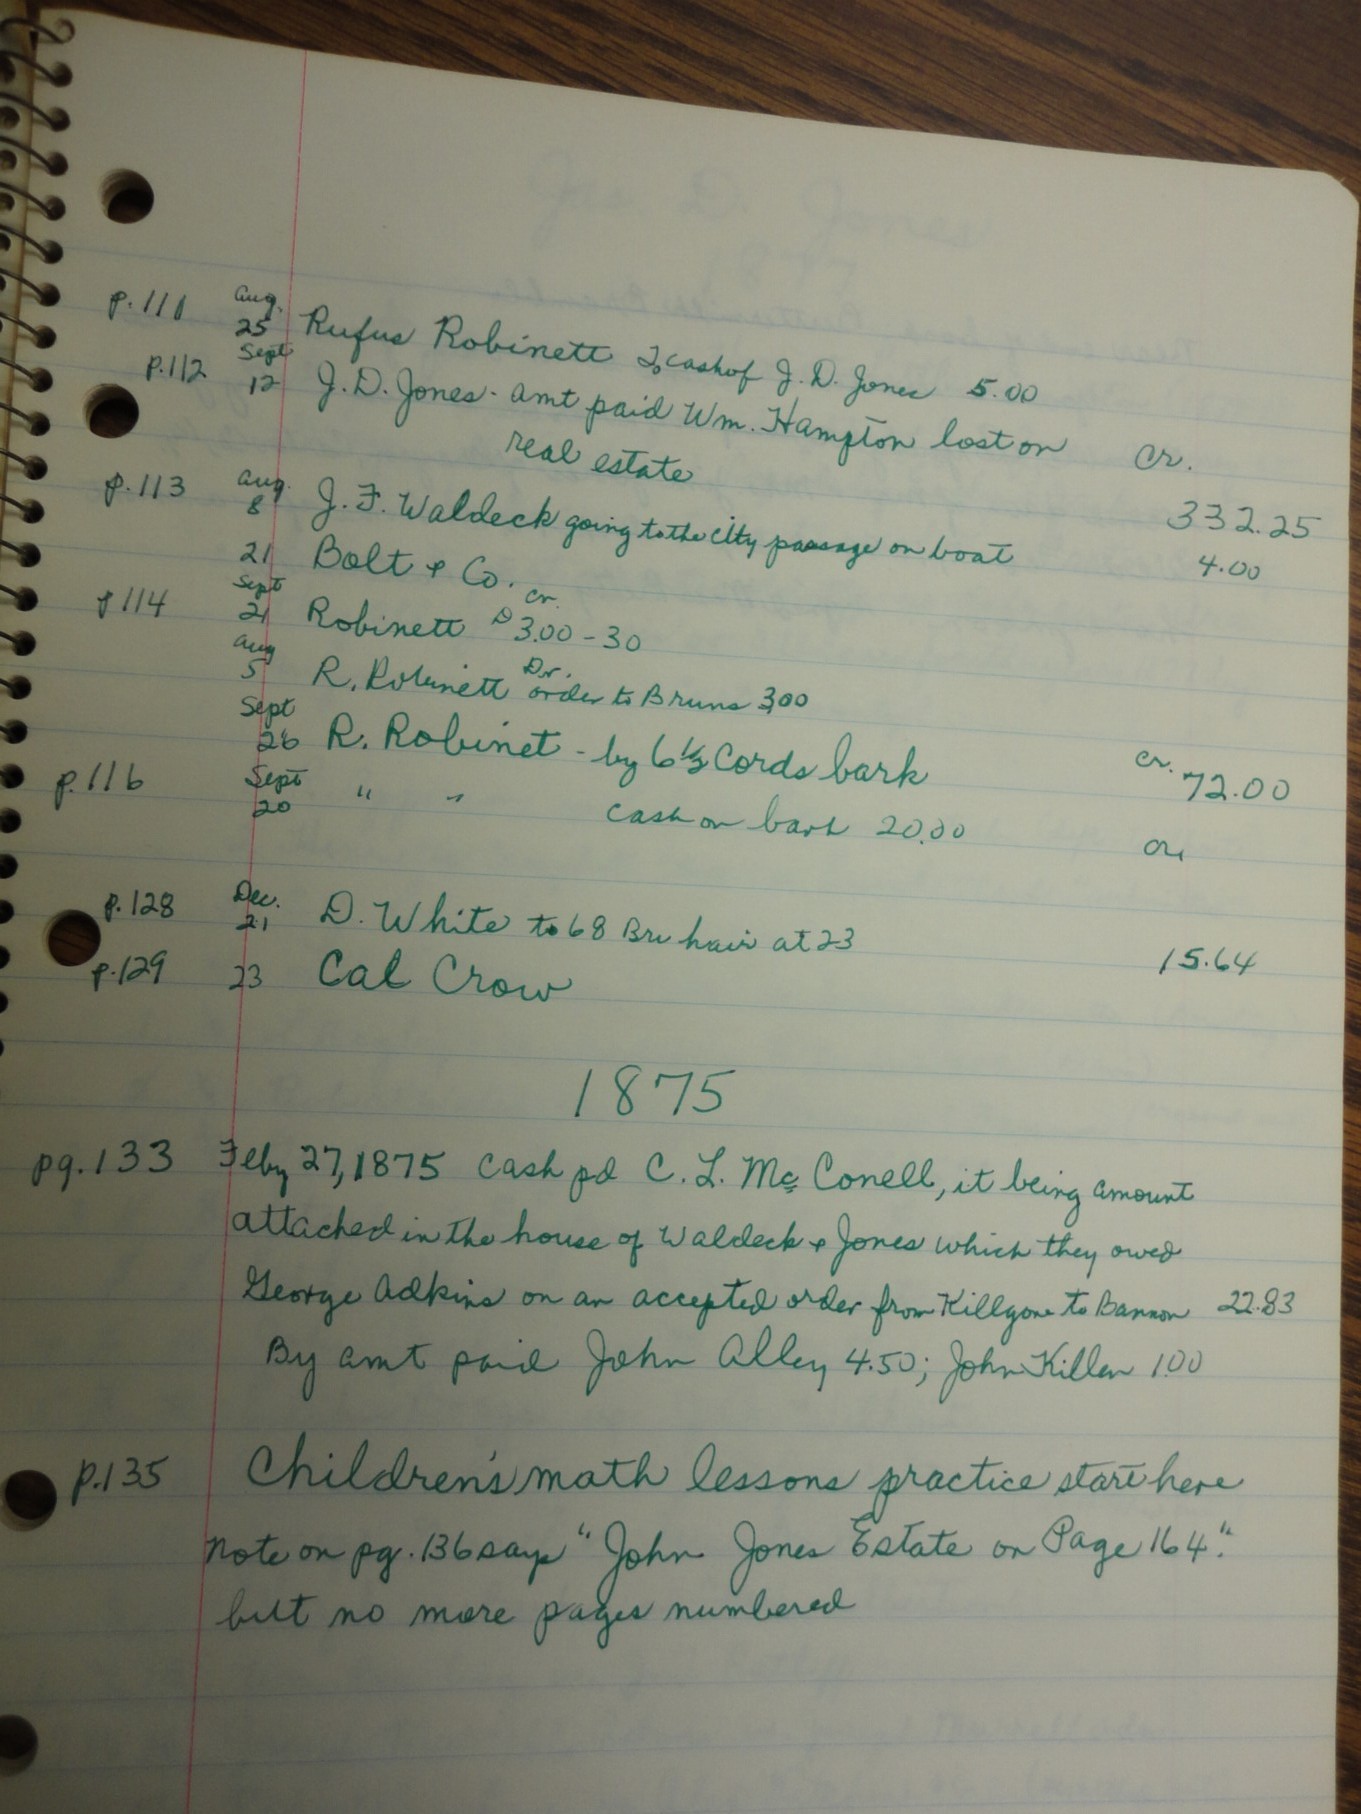 p.111 Aug. 25 Rufus Robinett To cash of J. D. Jones 5.00
p.112 Sept 12 J. D. Jones - amt paid Wm. Hampton lost on cr.
real estate 332.25
p.113 Aug. 8 J. F. Waldeck going to the city passage on boat 4.00
21 Bolt & Co.
p 114 Sept 21 Robinett cr. 3.00 - 30
Aug 5 R. Robinett Dr. order to Bruns 3.00
Sept 26 R. Robinet - by 6 1/2 Cords bark cr. 72.00
p.116 Sept 20 " " cash on bark 20.00 cr.
p.128 Dec. 21 D. White to 68 Bu hair at 23 15.64
p.129 23 Cal Crow
1875
pg.133 Feby 27, 1875 Cash pd C. L. McConell, it being amount
attached in the house of Waldeck & Jones which they owed
George Adkins on an accepted order from Killgore to Bannon 22.83
By amt paid John Alley 4.50; John Killen 1.00
p.135 Children's math lessons practice start here
note on pg. 136 says "John Jones Estate on Page 164".
but no more pages numbered